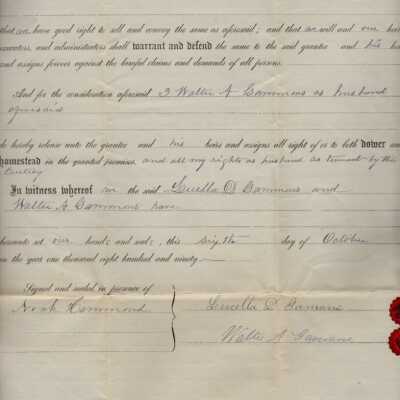 that we have good right to sell and convey the same as aforesaid; and that we will and our heirs
executors, and administrators shall warrant and defend the same to the said grantee and his heirs
and assigns forever against the lawful claims and demands of all persons.
And for the consideration aforesaid I Walter A Gammons as husband
aforesaid
do hereby release unto the grantee and his heirs and assigns all right of or to both dower and
homestead in the granted premises, and all my rights as husband as tenant by the
Curtesy
In witness whereof we the said Luella D Gammons and
Walter A Gammons have
hereunto set our hands and seals, this sixth day of October
in the year one thousand eight hundred and ninety
Signed and sealed in presence of
Noah Hammond
Luella D Gammons
Walter A Gammons